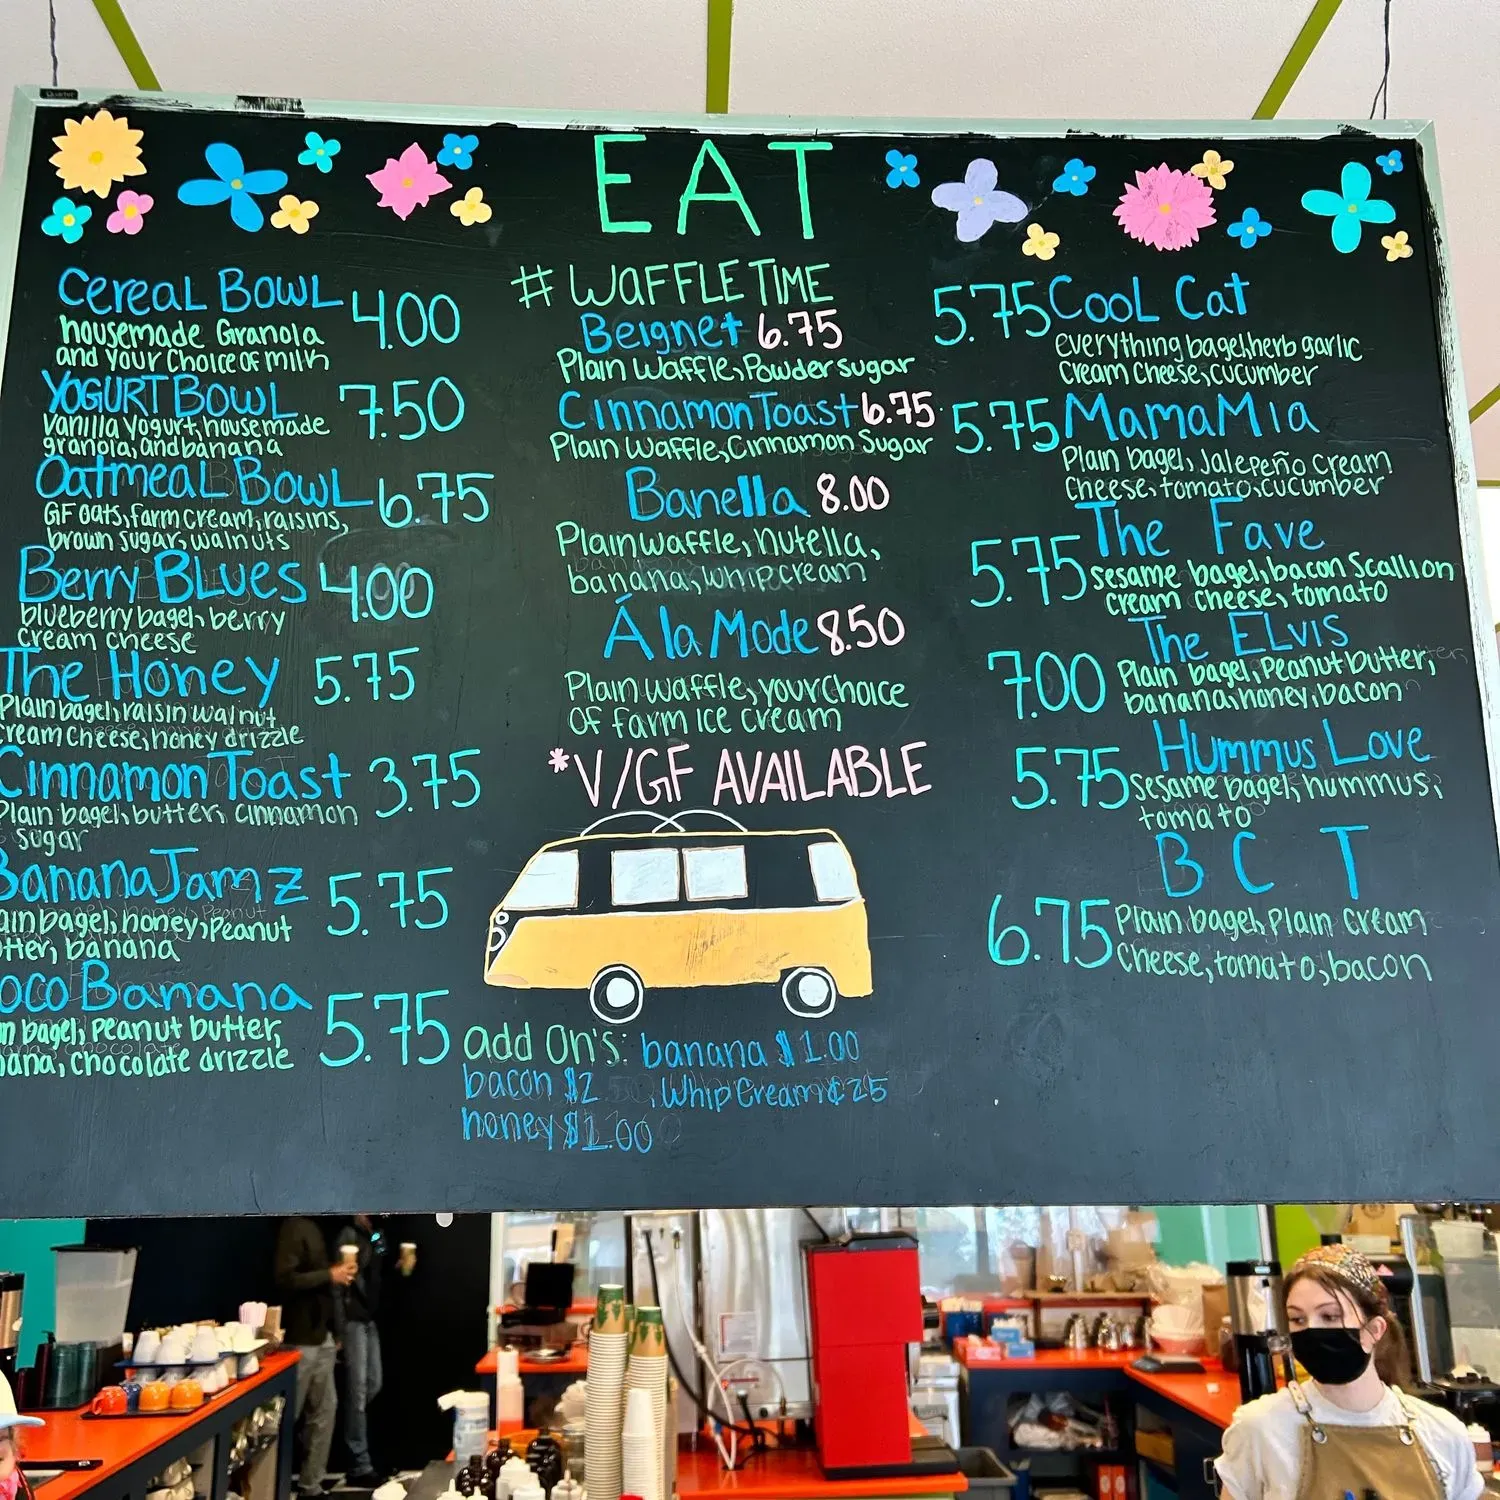 EAT
Cereal Bowl 4.00
housemade Granola
and your choice of milk
Yogurt Bowl 7.50
vanilla yogurt, housemade
granola, and banana
Oatmeal Bowl 6.75
GF oats, farm cream, raisins,
brown sugar, walnuts
Berry Blues 4.00
blueberry bagel, berry
cream cheese
The Honey 5.75
Plain bagel, raisin walnut
cream cheese, honey drizzle
Cinnamon Toast 3.75
Plain bagel, butter, cinnamon
sugar
Banana Jamz 5.75
ain bagel, honey, Peanut
tter, banana
oco Banana 5.75
n bagel, Peanut butter,
nana, chocolate drizzle
# WAFFLE TIME
Beignet 6.75
Plain Waffle, Powder sugar
Cinnamon Toast 6.75
Plain Waffle, Cinnamon Sugar
Banella 8.00
Plain waffle, nutella,
banana, whip cream
Á la Mode 8.50
Plain waffle, your choice
of farm ice cream
*V/GF AVAILABLE
add On's: banana $1.00
bacon $2 , Whip Cream ¢25
honey $1.00
5.75 Cool Cat
everything bagel, herb garlic
cream cheese, cucumber
5.75 Mama Mia
Plain bagel, Jalepeño cream
cheese, tomato, cucumber
5.75 The Fave
sesame bagel, bacon scallion
cream cheese, tomato
7.00 The Elvis
Plain bagel, Peanut butter,
banana, honey, bacon
5.75 Hummus Love
Sesame bagel, hummus,
tomato
6.75 BCT
Plain bagel, Plain cream
cheese, tomato, bacon